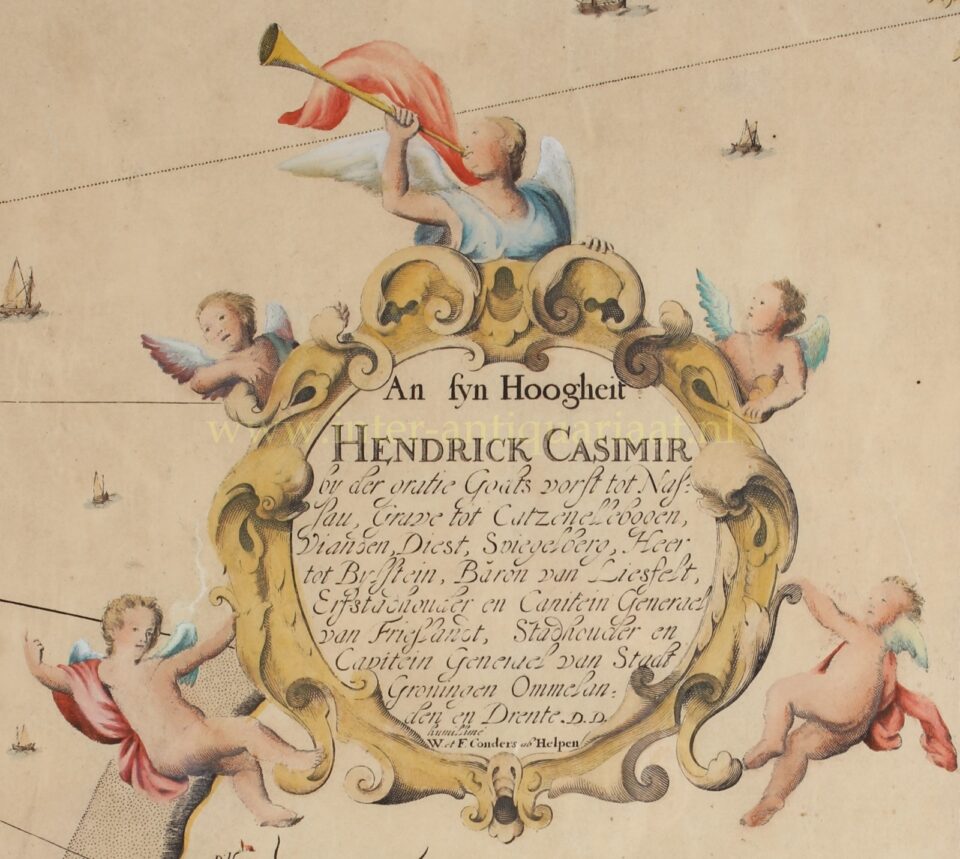 An syn Hoogheit
HENDRICK CASIMIR
www.inter-antiquariaat.nl
by der gratie Goats vorst tot Nas-
sau, Grave tot Catzenelleboogen,
Vianden, Diest, Spiegelberg, Heer
tot Bylstein, Baron van Liesfelt,
Erfstadhouder en Capitein Generael
van Frieslandt, Stadhouder en
Capitein Generael van Stadt
Groningen Ommelan-
den en Drente. D.D.
humillime
W. et F. Conders ab Helpen